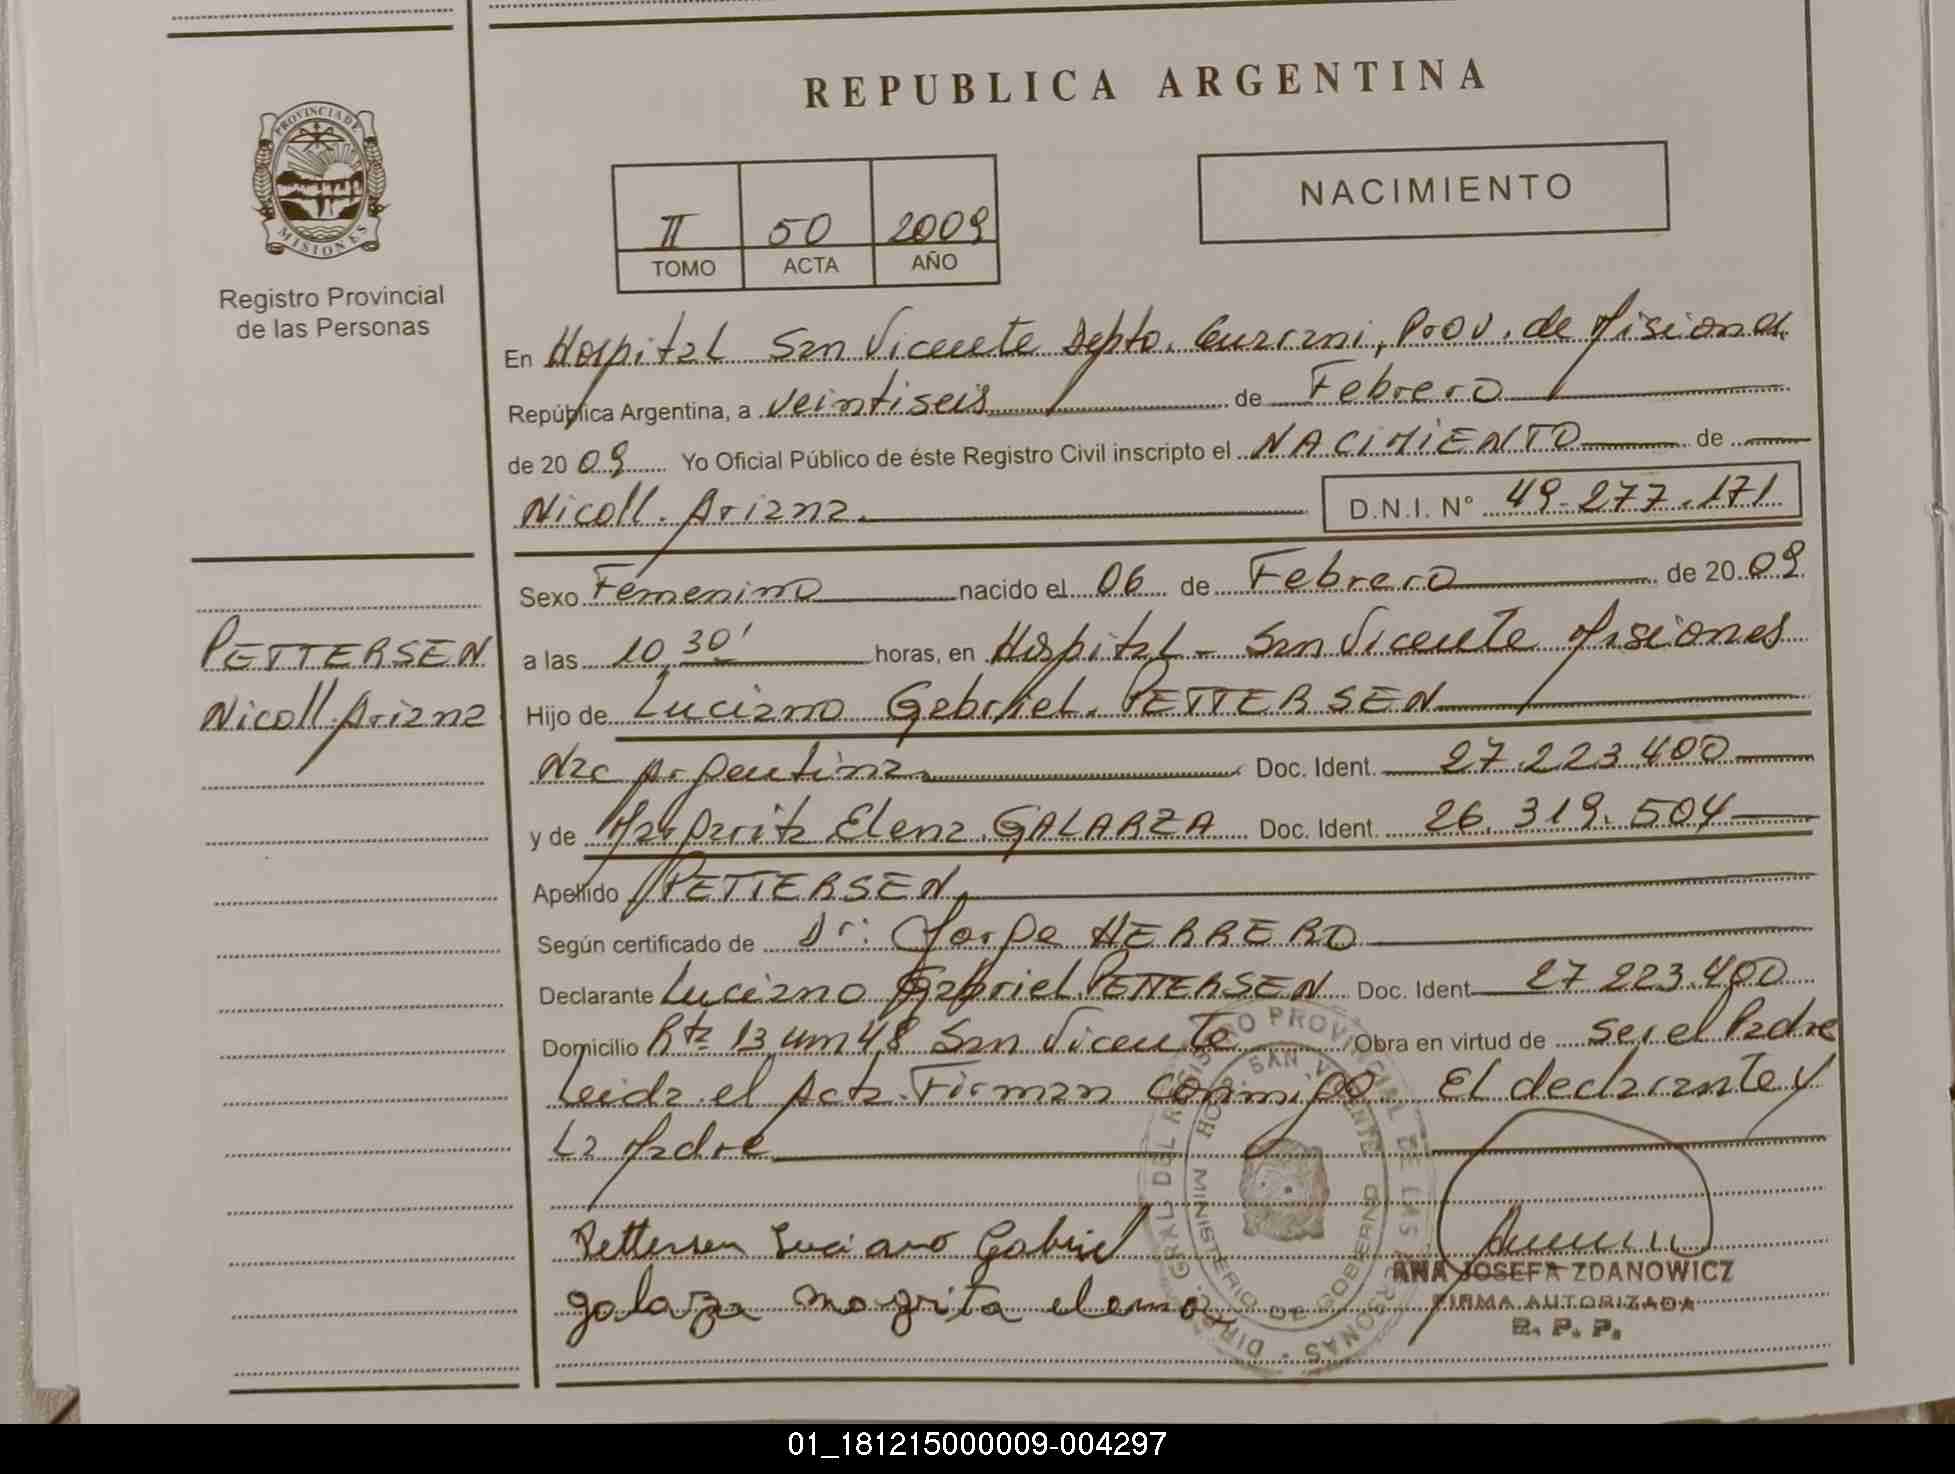 REPUBLICA ARGENTINA
PROVINCIA DE MISIONES
Registro Provincial
de las Personas
II 50 2009
TOMO ACTA AÑO
NACIMIENTO
En Hospital San Vicente Depto. Guarani, Prov. de Misiones
República Argentina, a veintiseis de Febrero
de 20 09 Yo Oficial Público de éste Registro Civil inscripto el NACIMIENTO de
Nicoll. Ariana. D.N.I. N° 49.277.171
Sexo Femenino nacido el 06 de Febrero de 20 09
PETTERSEN
Nicoll Ariana
a las 10,30' horas, en Hospital - San Vicente Misiones
Hijo de Luciano Gabriel. PETTERSEN
Nac Argentina Doc. Ident. 27.223.400
y de Margarita Elena GALARZA Doc. Ident. 26.319.504
Apellido PETTERSEN
Según certificado de Dr: Jorge HERRERO
Declarante Luciano Gabriel PETTERSEN Doc. Ident 27 223.400
Domicilio Rta 13 48 San Vicente Obra en virtud de ser el Padre
Leida el Acta Firman conmigo El declarante y
La Madre
Pettersen Luciano Gabriel
galarza margrita elena
DIR. GRAL. DEL REGISTRO PROVINCIAL DE LAS PERSONAS
HOSP. SAN VICENTE
MINISTERIO DE GOBIERNO
ANA JOSEFA ZDANOWICZ
FIRMA AUTORIZADA
R. P. P.
01_181215000009-004297